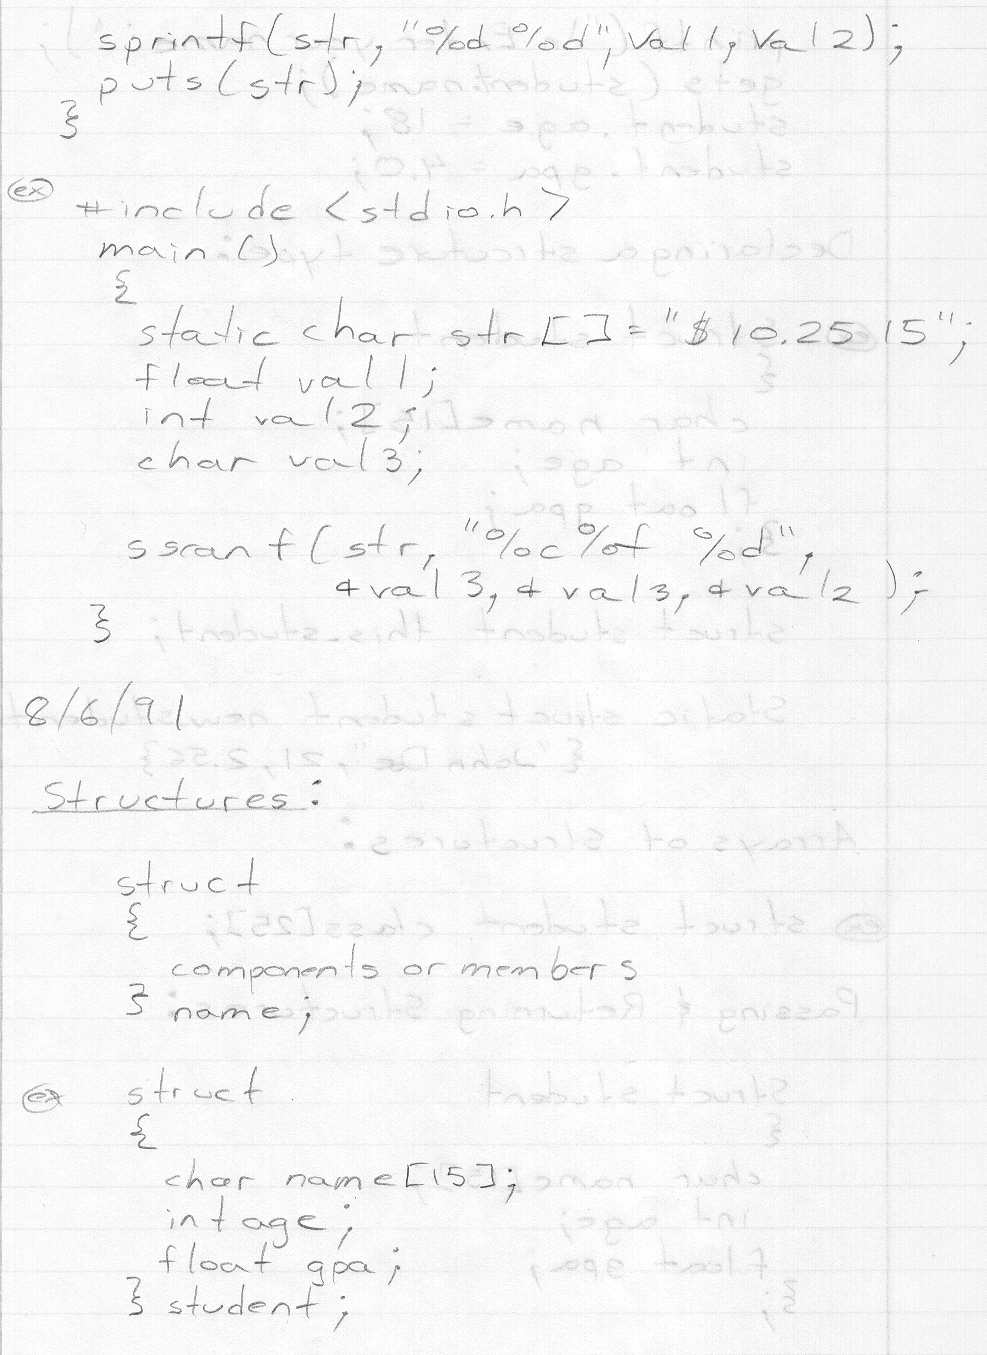 sprintf(str, "%d %d", val1, val2);
puts(str);
}
ex
#include <stdio.h>
main()
{
static char str[] = "$10.25 15";
float val1;
int val2;
char val3;
sscanf(str, "%c%f %d",
&val3, &val3, &val2);
}
8/6/91
Structures:
struct
{
components or members
} name;
ex struct
{
char name[15];
int age;
float gpa;
} student;